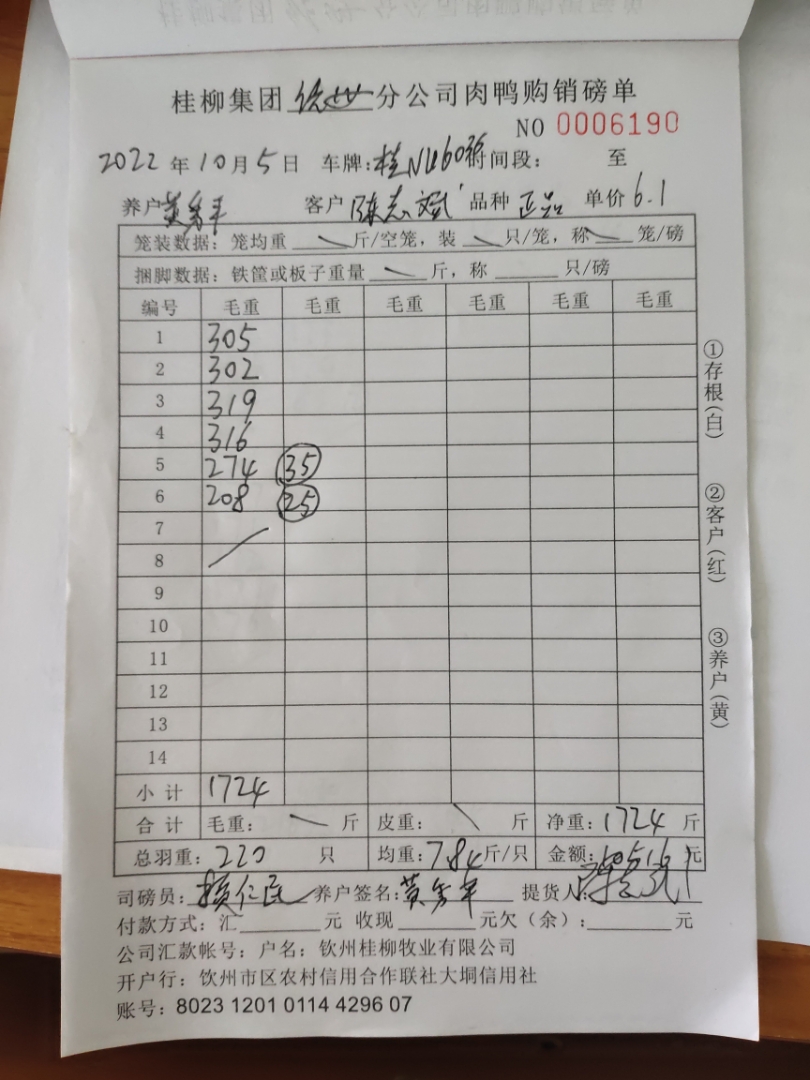 桂柳集团 分公司肉鸭购销磅单
NO 0006190
2022 年 10 月 5 日 车牌: 桂N 时间段: 至
养户 黄 客户 陈志斌 品种 正品 单价 6.1
笼装数据: 笼均重 斤/空笼, 装 只/笼, 称 笼/磅
捆脚数据: 铁筐或板子重量 斤, 称 只/磅
编号 毛重 毛重 毛重 毛重 毛重 毛重
1 305
2 302
3 319
4 316
5 274 35
6 208 25
7
8
9
10
11
12
13
14
小 计 1724
合 计 毛重: 斤 皮重: 斤 净重: 1724 斤
总羽重: 220 只 均重: 7.84 斤/只 金额: 10516 元
司磅员: 赖仁民 养户签名: 黄 提货人: 陈志斌
付款方式: 汇 元 收现 元欠(余): 元
公司汇款帐号: 户名: 钦州桂柳牧业有限公司
开户行: 钦州市区农村信用合作联社大垌信用社
账号: 8023 1201 0114 4296 07
①存根(白)
②客户(红)
③养户(黄)